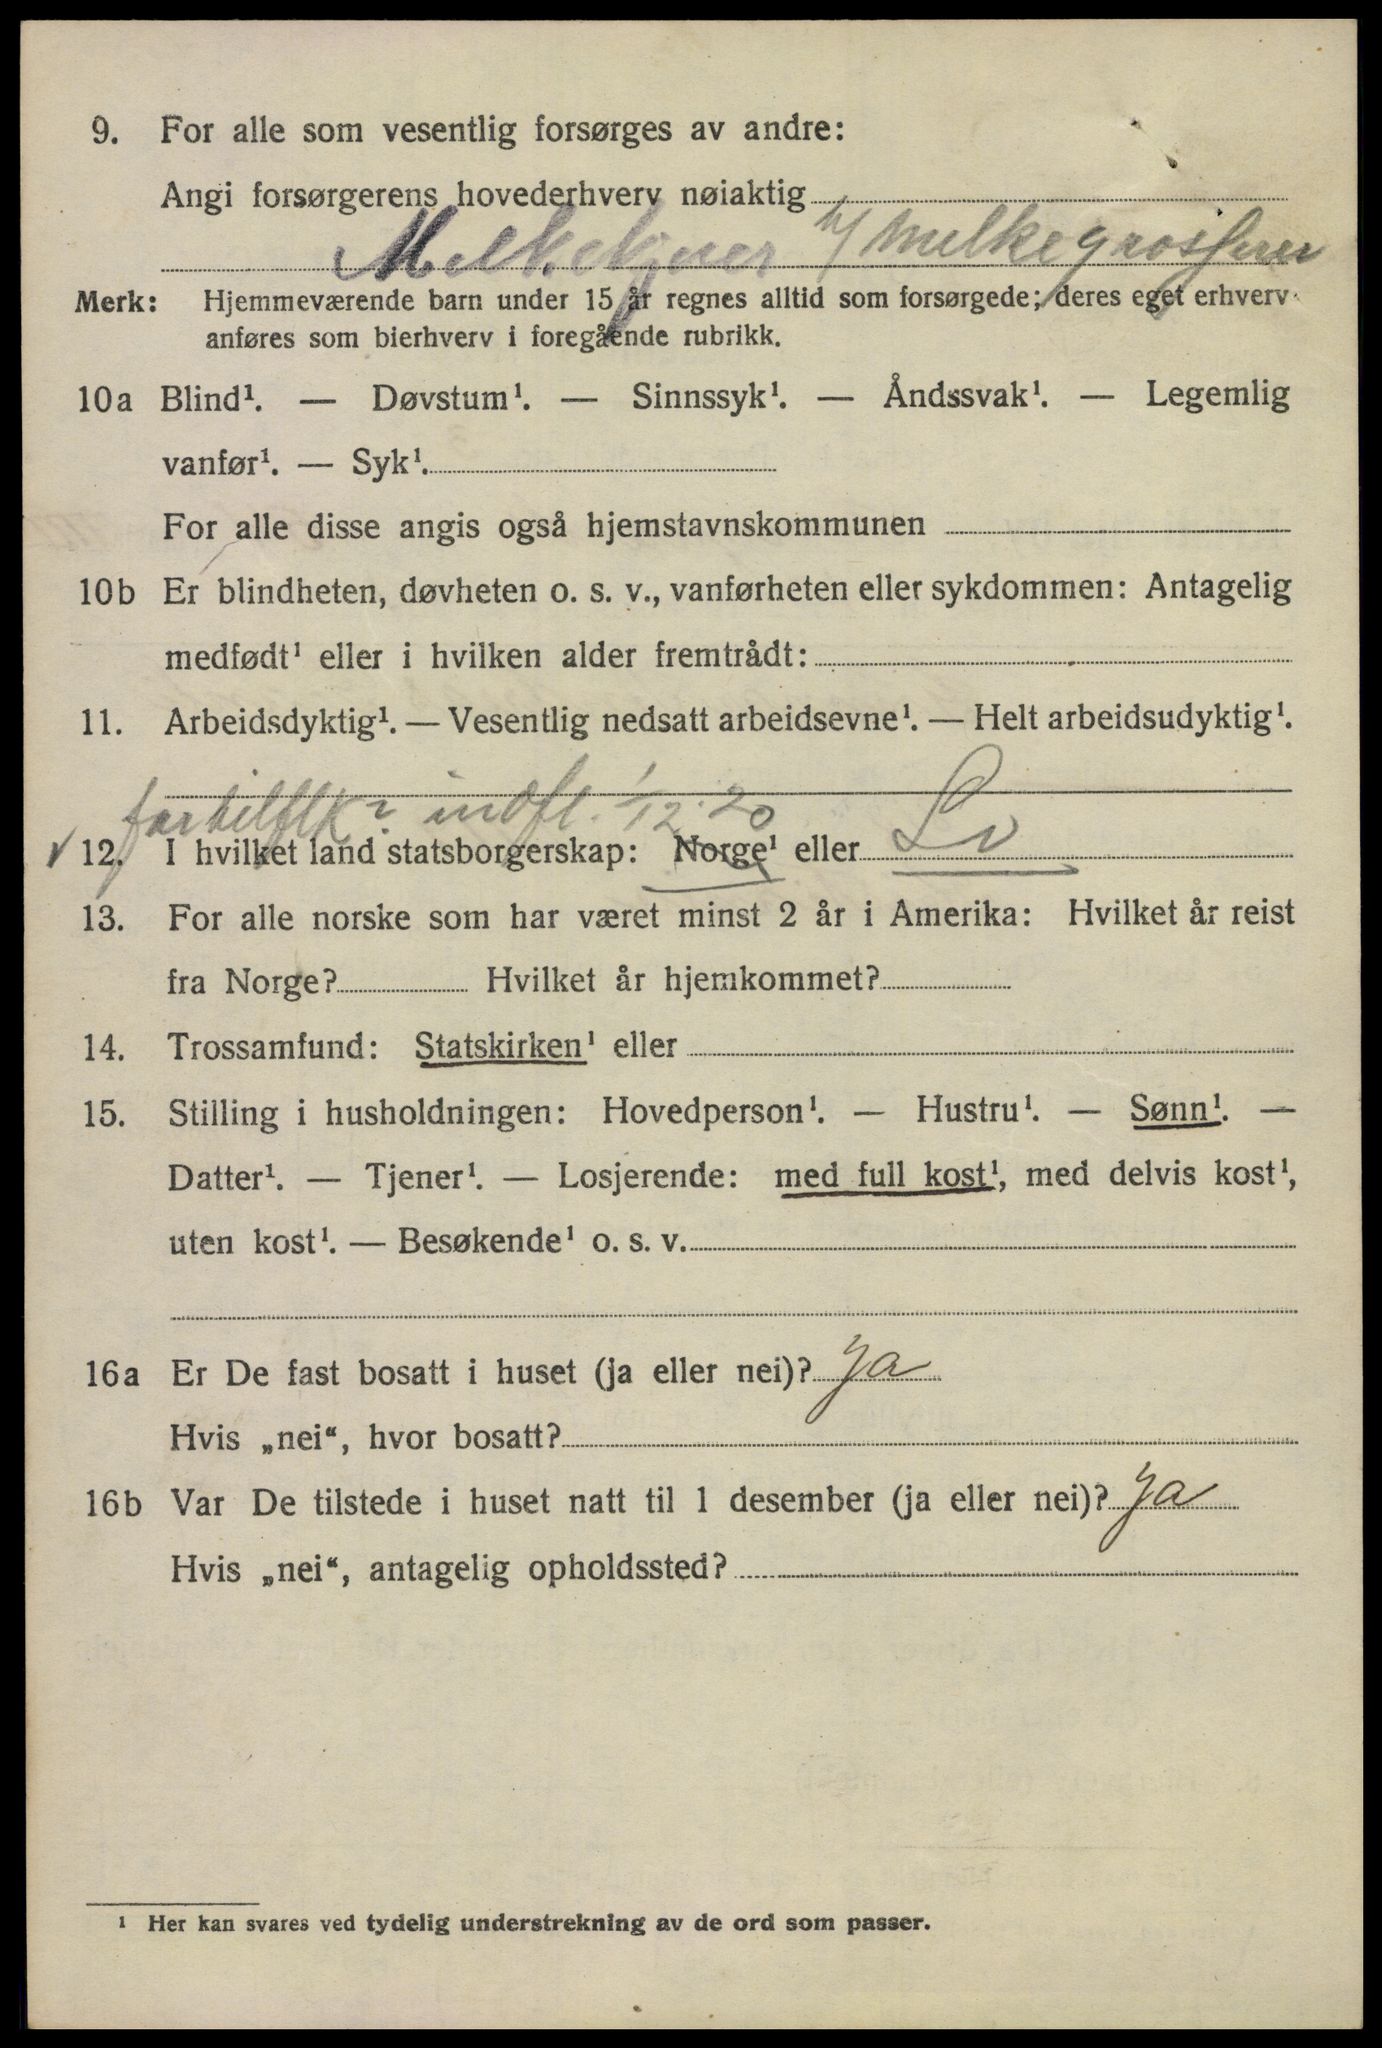 9. For alle som vesentlig forsørges av andre:
Angi forsørgerens hovederhverv nøiaktig
h/ melkegrosserer
Merk: Hjemmeværende barn under 15 år regnes alltid som forsørgede; deres eget erhverv
anføres som bierhverv i foregående rubrikk.
10a Blind¹. — Døvstum¹. — Sinnssyk¹. — Åndssvak¹. — Legemlig
vanfør¹. — Syk¹.
For alle disse angis også hjemstavnskommunen
10b Er blindheten, døvheten o. s. v., vanførheten eller sykdommen: Antagelig
medfødt¹ eller i hvilken alder fremtrådt:
11. Arbeidsdyktig¹. — Vesentlig nedsatt arbeidsevne¹. — Helt arbeidsudyktig¹.
indfl. 1/12.20
12. I hvilket land statsborgerskap: Norge¹ eller Sv
13. For alle norske som har været minst 2 år i Amerika: Hvilket år reist
fra Norge? Hvilket år hjemkommet?
14. Trossamfund: Statskirken¹ eller
15. Stilling i husholdningen: Hovedperson¹. — Hustru¹. — Sønn¹. —
Datter¹. — Tjener¹. — Losjerende: med full kost¹, med delvis kost¹,
uten kost¹. — Besøkende¹ o. s. v.
16a Er De fast bosatt i huset (ja eller nei)? Ja
Hvis „nei“, hvor bosatt?
16b Var De tilstede i huset natt til 1 desember (ja eller nei)? Ja
Hvis „nei“, antagelig opholdssted?
¹ Her kan svares ved tydelig understrekning av de ord som passer.